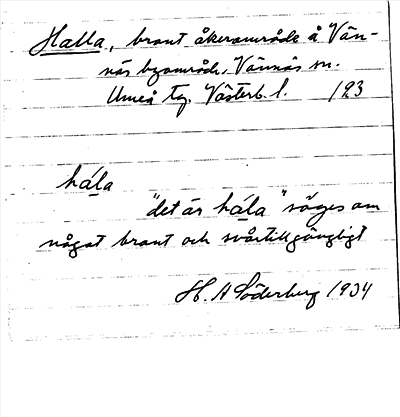 Halla, brant åkerområde å Vän-
näs byområde, Vännäs sn.
Umeå tg. Västerb. l. 123
hála
"det är hála" säges om
något brant och svårtillgängligt
H. A Söderberg 1934